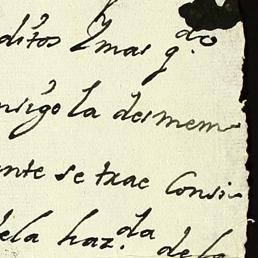 ditos Y mas q.do
nsigo la desmem
nte se trae Consi-
dela haz.da dela